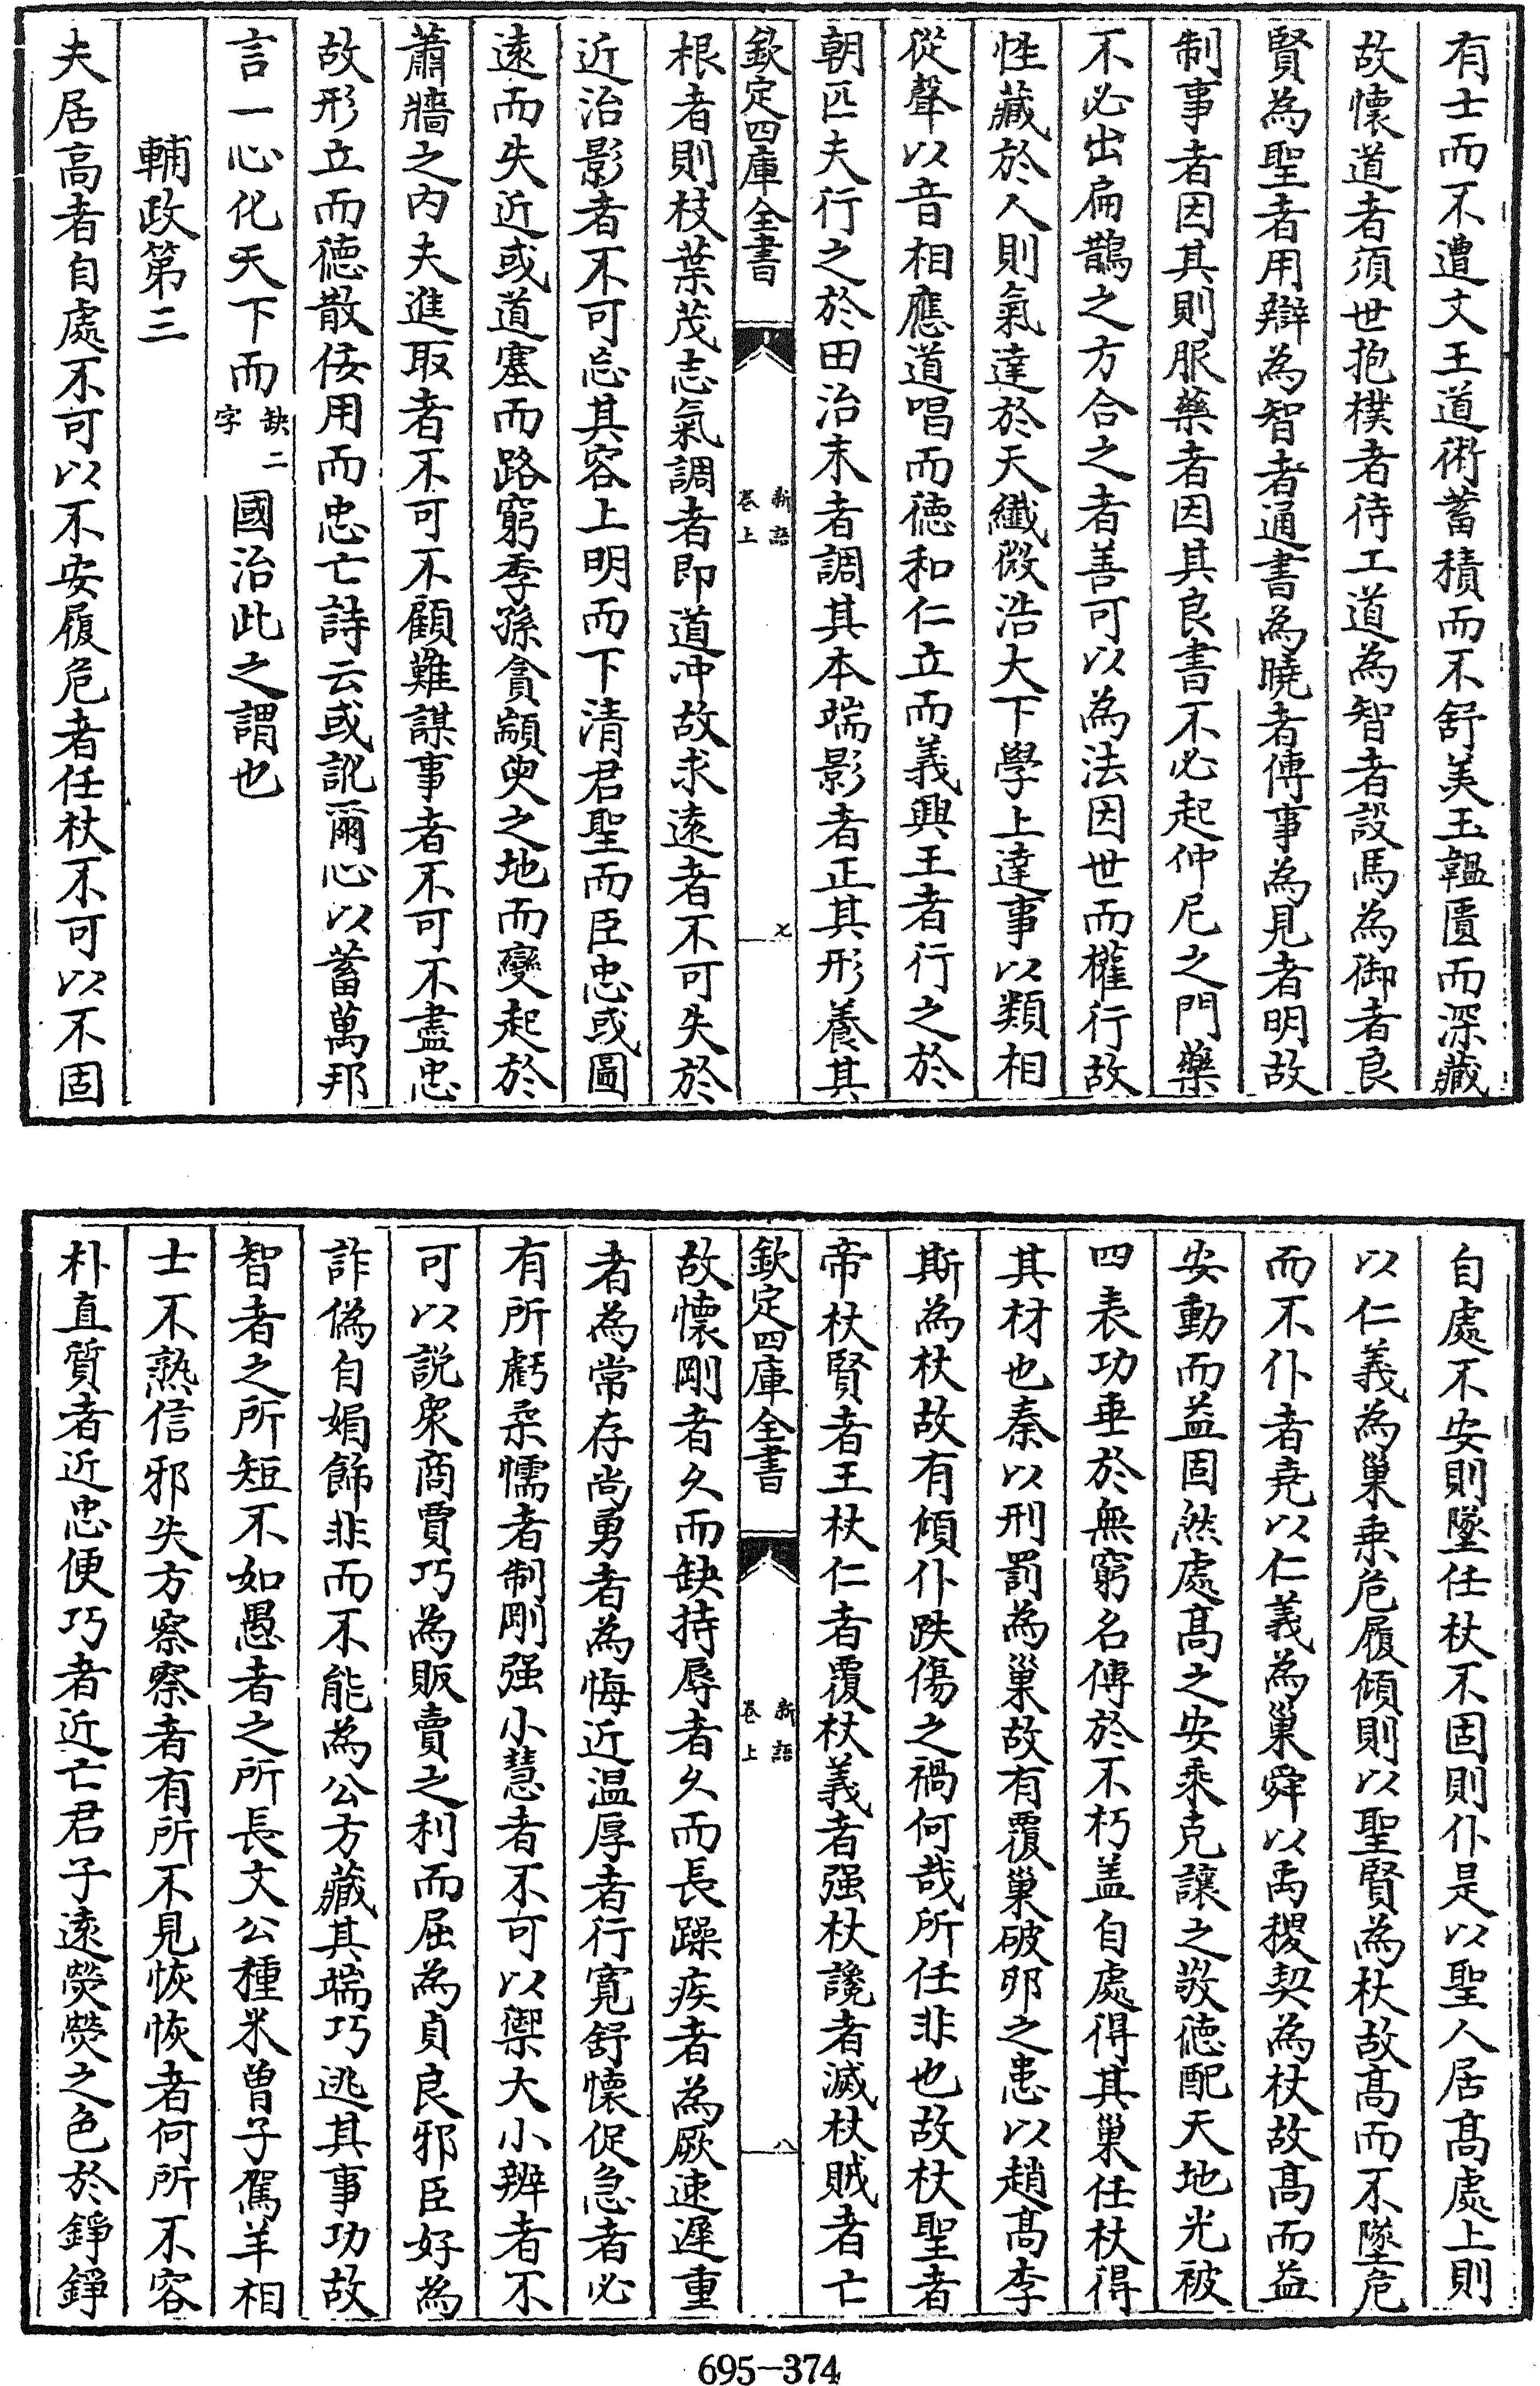 有士而不遭文王道術蓄積而不舒美玉韞匵而深藏
故懷道者須世抱樸者待工道為智者設馬為御者良
賢為聖者用辯為智者通書為曉者傳事為見者明故
制事者因其則服藥者因其良書不必起仲尼之門藥
不必出扁鵲之方合之者善可以為法因世而權行故
性藏於人則氣達於天纖微浩大下學上達事以類相
從聲以音相應道唱而徳和仁立而義興王者行之於
朝匹夫行之於田治末者調其本端影者正其形養其
欽定四庫全書
新語
卷上
七
根者則枝葉茂志氣調者即道冲故求逺者不可失於
近治影者不可忘其容上明而下清君聖而臣忠或圖
逺而失近或道塞而路窮季孫貪顓臾之地而變起於
蕭牆之内夫進取者不可不顧難謀事者不可不盡忠
故形立而徳散佞用而忠亡詩云或訛爾心以蓄萬邦
言一心化天下而缺二字國治此之謂也
輔政第三
夫居高者自處不可以不安履危者任杖不可以不固
自處不安則墜任杖不固則仆是以聖人居髙處上則
以仁義為巢乗危履傾則以聖賢為杖故髙而不墜危
而不仆者堯以仁義為巢舜以禹稷契為杖故髙而益
安動而益固然處髙之安乗克讓之敬徳配天地光被
四表功垂於無窮名傳於不朽盖自處得其巢任杖得
其材也秦以刑罰為巢故有覆巢破卵之患以趙髙李
斯為杖故有傾仆跌傷之禍何哉所任非也故杖聖者
帝杖賢者王杖仁者覇杖義者强杖讒者滅杖賊者亡
欽定四庫全書
新語
卷上
八
故懷剛者久而缺持辱者久而長躁疾者為厥速遲重
者為常存尚勇者為悔近温厚者行寛舒懷促急者必
有所虧柔懦者制剛强小慧者不可以禦大小辨者不
可以説衆商賈巧為販賣之利而屈為貞良邪臣好為
詐偽自媚飾非而不能為公方藏其端巧逃其事功故
智者之所短不如愚者之所長文公種米曽子駕羊相
士不熟信邪失方察察者有所不見恢恢者何所不容
朴直質者近忠便巧者近亡君子逺熒熒之色放錚錚
695-374